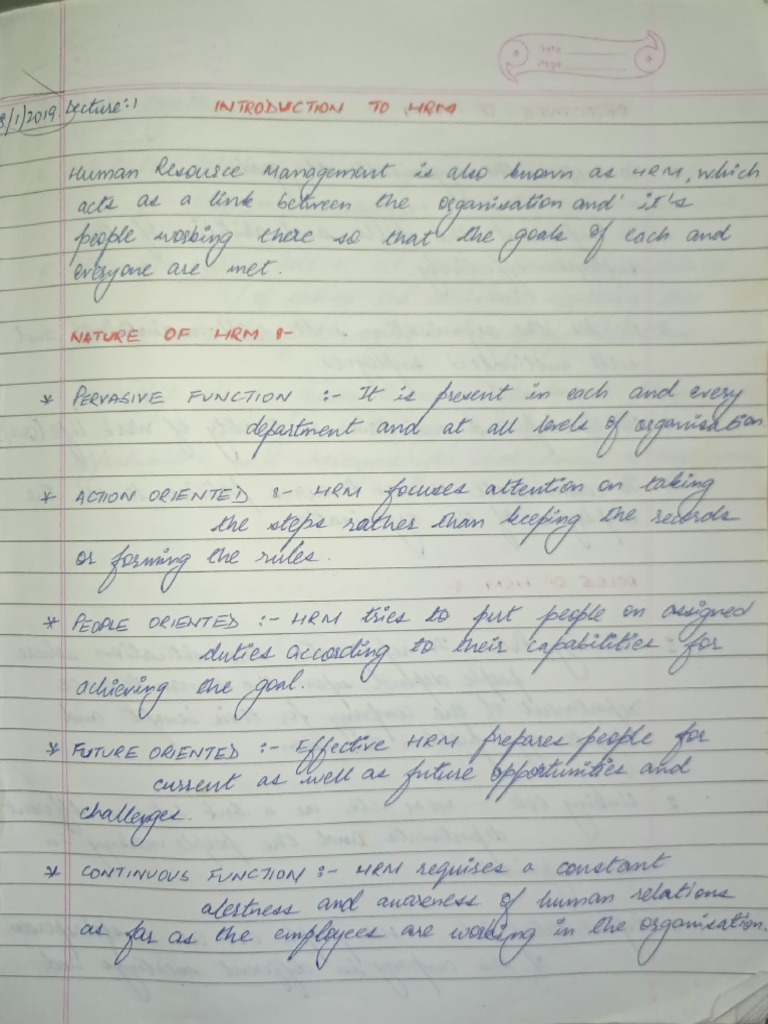 Date
Page
8/1/2019 Lecture:1 INTRODUCTION TO HRM
Human Resource Management is also known as HRM, which
acts as a link between the organisation and it's
people working there so that the goals of each and
everyone are met.
NATURE OF HRM :-
* PERVASIVE FUNCTION :- It is present in each and every
department and at all levels of organisation.
* ACTION ORIENTED :- HRM focuses attention on taking
the steps rather than keeping the records
or forming the rules.
* PEOPLE ORIENTED :- HRM tries to put people on assigned
duties according to their capabilities for
achieving the goal.
* FUTURE ORIENTED :- Effective HRM prepares people for
current as well as future opportunities and
challenges.
* CONTINUOUS FUNCTION :- HRM requires a constant
alertness and awareness of human relations
as far as the employees are working in the organisation.